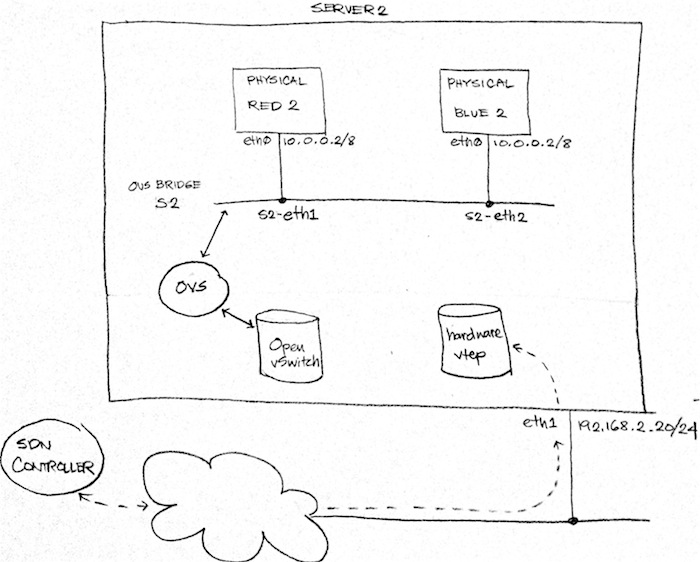 SERVER2
PHYSICAL
RED 2
PHYSICAL
BLUE 2
eth0 10.0.0.2/8
eth0 10.0.0.2/8
OVS BRIDGE
S2
S2-eth1
S2-eth2
OVS
Open
vSwitch
hardware
vtep
eth1 192.168.2.20/24
SDN
CONTROLLER